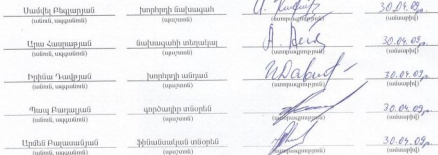 Սամվել Բեգլարյան խորհրդի նախագահ 30.04.09թ.
(անուն, ազգանուն) (պաշտոն) (ստորագրություն) (ամսաթիվ)
Արա Հասրաթյան նախագահի տեղակալ 30.04.09թ.
(անուն, ազգանուն) (պաշտոն) (ստորագրություն) (ամսաթիվ)
Իրինա Դավթյան խորհրդի անդամ 30.04.09թ.
(անուն, ազգանուն) (պաշտոն) (ստորագրություն) (ամսաթիվ)
Պապ Բադալյան գործադիր տնօրեն 30.04.09թ.
(անուն, ազգանուն) (պաշտոն) (ստորագրություն) (ամսաթիվ)
Արմեն Բալասանյան ֆինանսական տնօրեն 30.04.09թ.
(անուն, ազգանուն) (պաշտոն) (ստորագրություն) (ամսաթիվ)